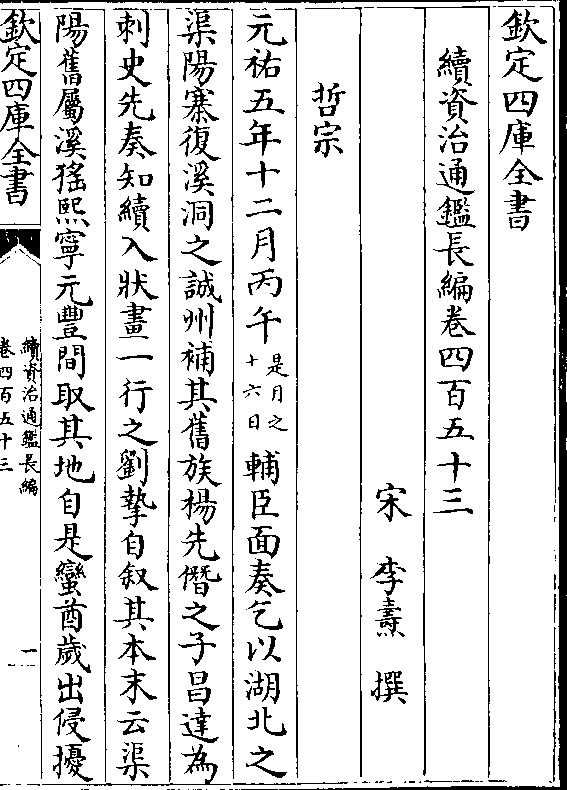 欽定四庫全書
續資治通鑑長編卷四百五十三
宋 李燾 撰
哲宗
元祐五年十二月丙午是月之十六日輔臣面奏乞以湖北之
渠陽寨復溪洞之誠州補其舊族楊先僭之子昌達為
刺史先奏知續入狀畫一行之劉摯自叙其本末云渠
陽舊屬溪猺熙寧元豐間取其地自是蠻酋歲出侵擾
欽定四庫全書
續資治通鑑長編
卷四百五十三
一